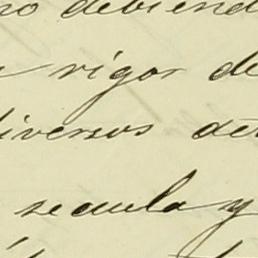 no debiend
rigor de
diversos de
secula y